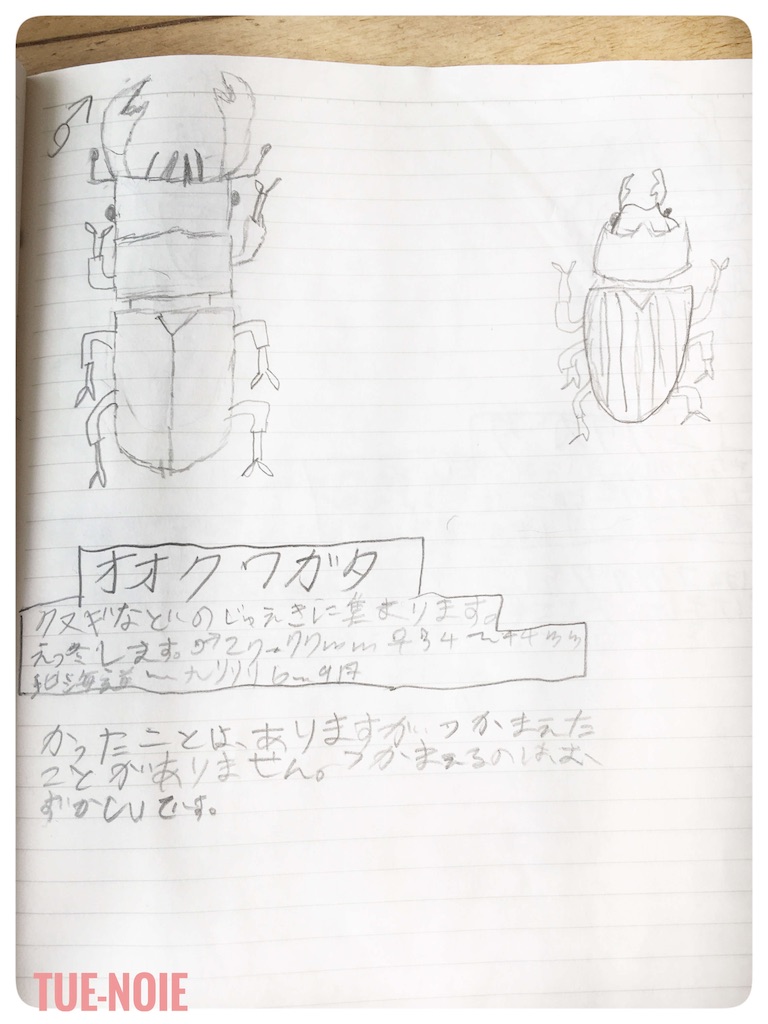 ♂
オオクワガタ
クヌギなどのじゅえきに集まります。
えっ冬します。♂27〜77mm ♀34〜44mm
北海道〜九州 6〜9月
かったことは、ありますが、つかまえた
ことがありません。つかまえるのはむ
ずかしいです。
TUE-NOIE